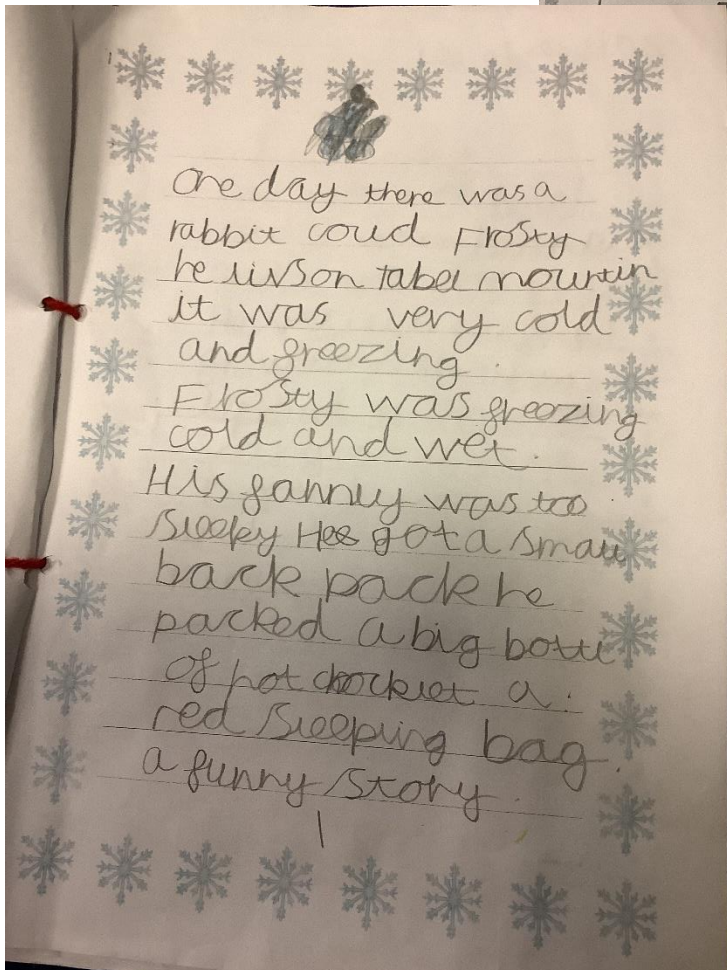 One day there was a
rabbit coud Frosty
he livson tabel mountin
it was very cold
and freezing.
Frosty was freezing
cold and wet.
His fanny was too
Sleepy Hee got a small
back pack he
packed a big bottl
of hot chocklet a
red Sleeping bag.
a funny Story.
1